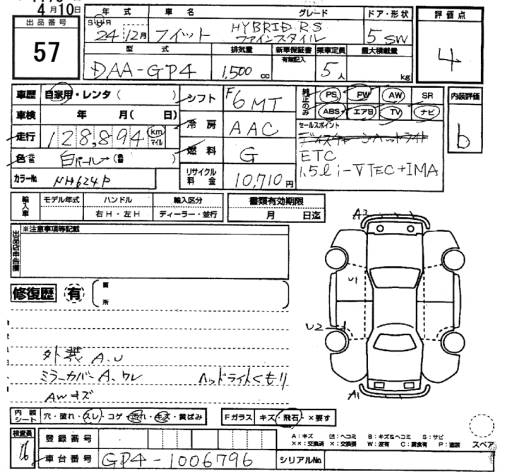 4月10日
出品番号
57
年式 車名 グレード ドア・形状
24年12月 フィット HYBRID RS ファインスタイル 5 SW
型式 排気量 新車保証書 乗車定員 最大積載量
有無記入
DAA-GP4 1,500 cc 5人 kg
評価点
4
車歴 自家用・レンタ( )
車検 年 月( 日)
走行 128,894 km マイル
色 白パール (色替 )
カラーNo. NH624P
シフト F6MT
冷房 AAC
燃料 G
リサイクル料金 10,710円
純正のみ PS PW AW SR
ABS エアB TV ナビ
セールスポイント
ディスチャージヘッドライト
ETC
1.5L i-VTEC+IMA
内装評価
b
輸入車 モデル年式 ハンドル 輸入区分 書類有効期限
右H・左H ディーラー・並行 月 日迄
出品店申告欄 ※注意事項等記載
修復歴 有 箇所
外装A.U
ミラーカバーA.ワレ ヘッドライトくもり
AWキズ
A2
U1
U2
A1
内装シート 穴・破れ・スレ・コゲ・汚れ・キズ・黄ばみ Fガラス キズ・飛石・×要す
検査員
16
登録番号
車台番号 GP4-1006796 シリアルNo.
A:キズ U:ヘコミ B:キズ&ヘコミ S:サビ
××:交換済 ×:交換要 W:波有 C:腐食有 P:塗装
スペア